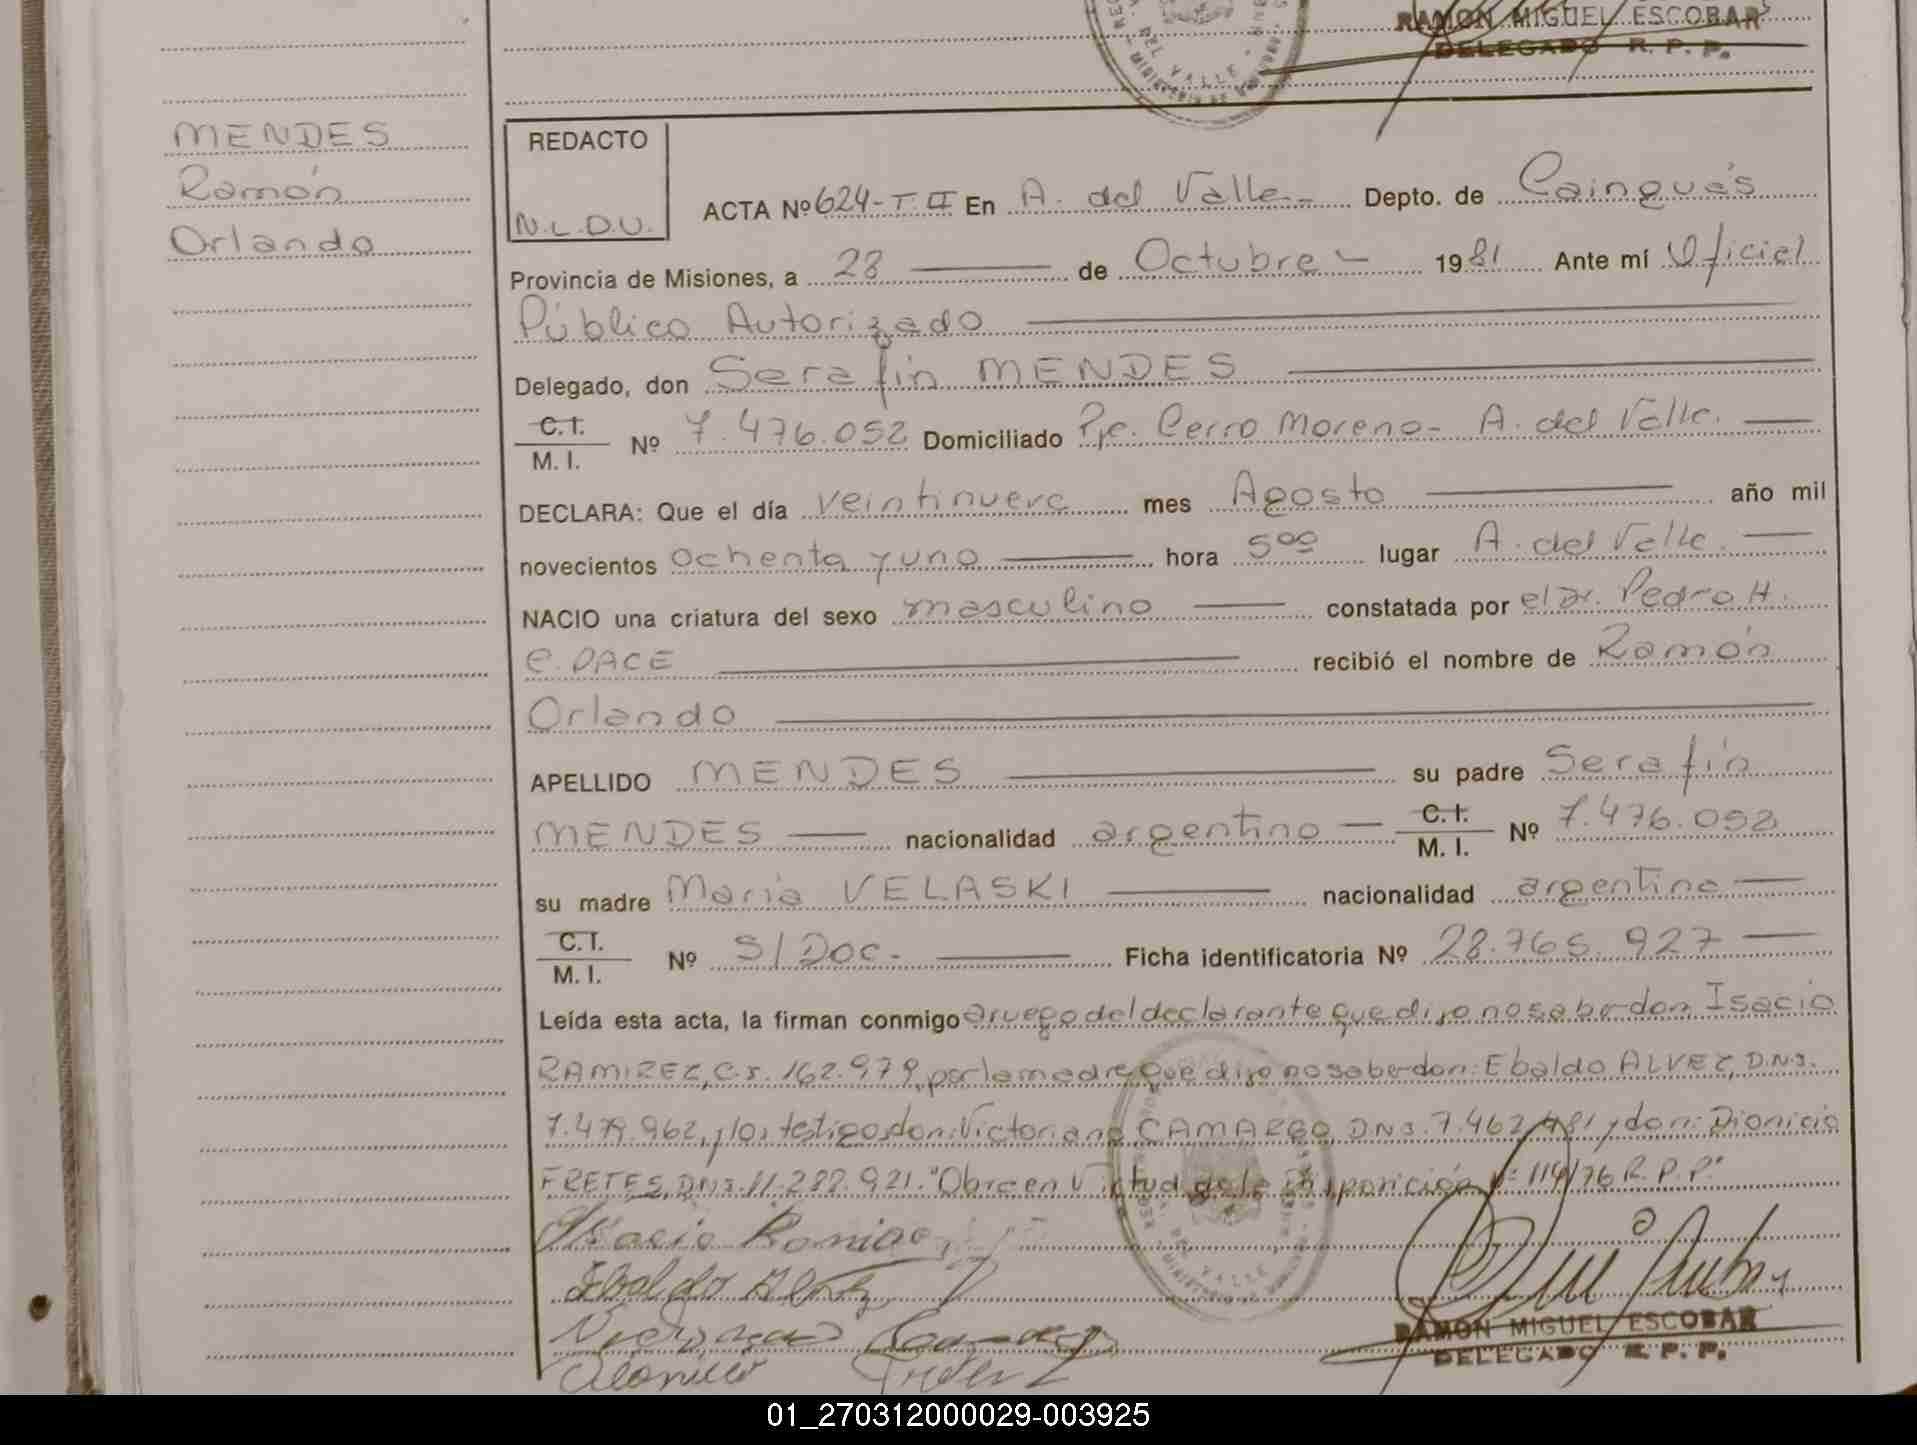 RAMON MIGUEL ESCOBAR
DELEGADO R. P. P.
MENDES
Ramón
Orlando
REDACTO
N.L.D.U.
ACTA Nº 624-T.II En A. del Valle.- Depto. de Cainguás
Provincia de Misiones, a 28 de Octubre - 1981 Ante mí Oficial
Público Autorizado
Delegado, don Serafín MENDES
C.I. M. I. Nº 7.476.052 Domiciliado Pje. Cerro Moreno- A. del Valle.
DECLARA: Que el día veintinueve mes Agosto año mil
novecientos ochenta y uno hora 5⁰⁰ lugar A. del Valle.
NACIO una criatura del sexo masculino constatada por el Dr. Pedro H.
C. DACE recibió el nombre de Ramón
Orlando
APELLIDO MENDES su padre Serafín
MENDES nacionalidad argentino C.I. M. I. Nº 7.476.052
su madre María VELASKI nacionalidad argentina
C.I. M. I. Nº S/Doc.- Ficha identificatoria Nº 28.765.927
Leída esta acta, la firman conmigo a ruego del declarante que dijo no saber don Isacio
RAMIREZ, C.I. 162.979, por la madre que dijo no saber don: Ebaldo ALVEZ, D.N.I.
7.479.962, y los testigos don: Victoriano CAMARGO, DNI. 7.462.481 y don: Dionicio
FRETES, DNI. 11.282.921. "Obra en Virtud de la Disposición Nº 114/76 R.P.P."
RAMON MIGUEL ESCOBAR
DELEGADO R. P. P.
01_270312000029-003925